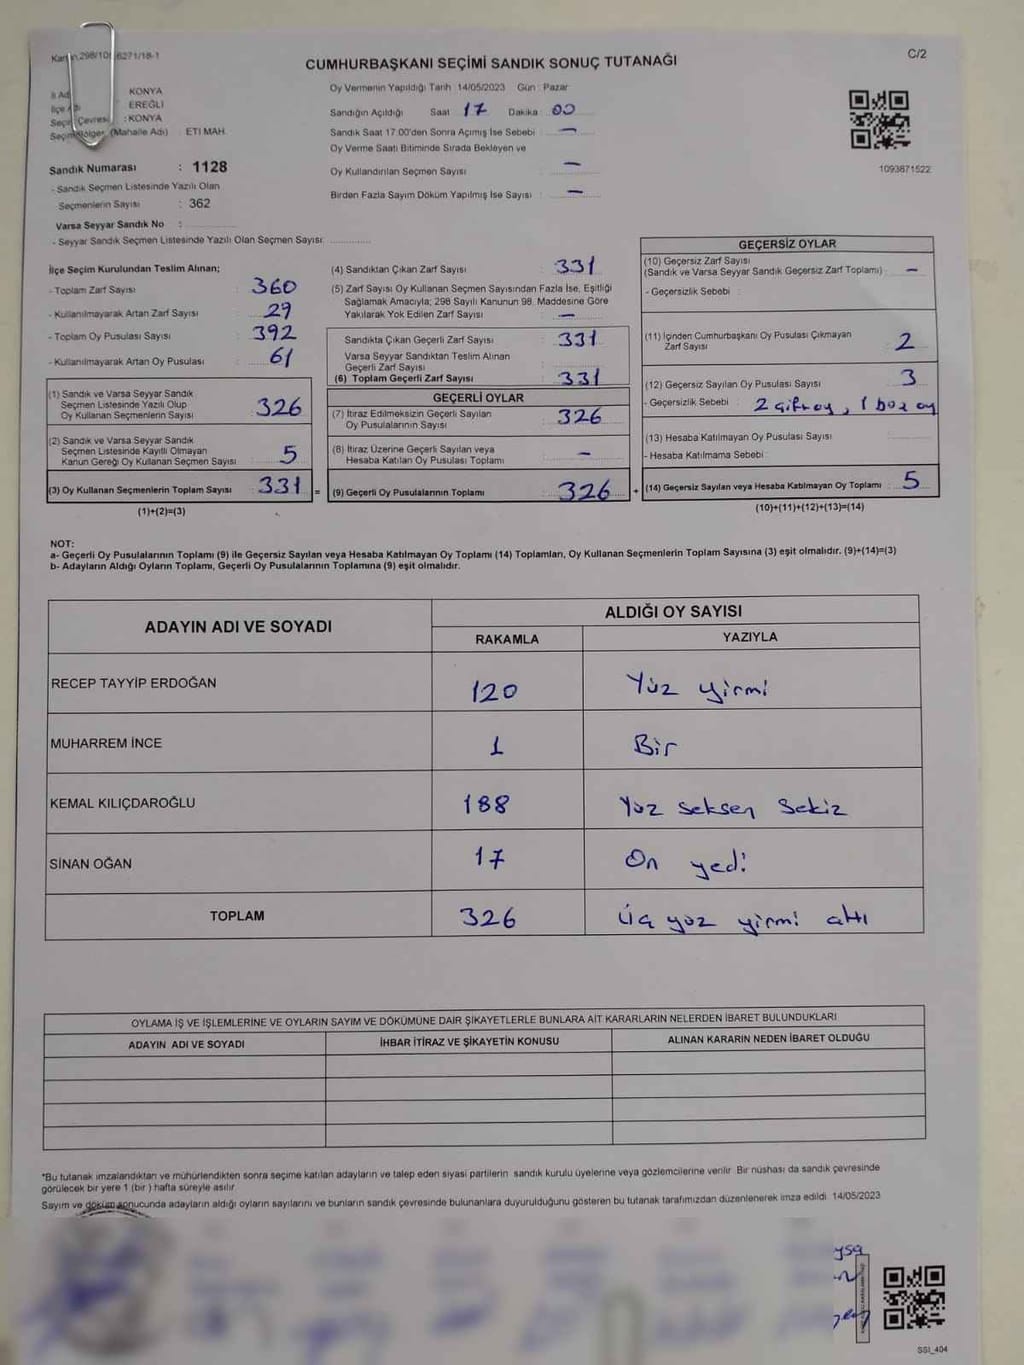 6271/18-1
C/2
CUMHURBAŞKANI SEÇİMİ SANDIK SONUÇ TUTANAĞI
KONYA
İlçe Adı : EREĞLİ
Seçim Çevresi : KONYA
(Mahalle Adı) : ETİ MAH.
Sandık Numarası : 1128
- Sandık Seçmen Listesinde Yazılı Olan
Seçmenlerin Sayısı : 362
Varsa Seyyar Sandık No :
- Seyyar Sandık Seçmen Listesinde Yazılı Olan Seçmen Sayısı:
Oy Vermenin Yapıldığı Tarih 14/05/2023 Gün : Pazar
Sandığın Açıldığı Saat 17 Dakika 00
Sandık Saat 17.00'den Sonra Açımış İse Sebebi : —
Oy Verme Saati Bitiminde Sırada Bekleyen ve
Oy Kullandırılan Seçmen Sayısı : —
Birden Fazla Sayım Döküm Yapılmış İse Sayısı : —
1093871522
İlçe Seçim Kurulundan Teslim Alınan;
- Toplam Zarf Sayısı : 360
- Kullanılmayarak Artan Zarf Sayısı : 29
- Toplam Oy Pusulası Sayısı : 392
- Kullanılmayarak Artan Oy Pusulası : 61
(1) Sandık ve Varsa Seyyar Sandık
Seçmen Listesinde Yazılı Olup
Oy Kullanan Seçmenlerin Sayısı : 326
(2) Sandık ve Varsa Seyyar Sandık
Seçmen Listesinde Kayıtlı Olmayan
Kanun Gereği Oy Kullanan Seçmen Sayısı : 5
(3) Oy Kullanan Seçmenlerin Toplam Sayısı : 331 =
(1)+(2)=(3)
(4) Sandıktan Çıkan Zarf Sayısı : 331
(5) Zarf Sayısı Oy Kullanan Seçmen Sayısından Fazla İse, Eşitliği
Sağlamak Amacıyla; 298 Sayılı Kanunun 98. Maddesine Göre
Yakılarak Yok Edilen Zarf Sayısı : —
Sandıkta Çıkan Geçerli Zarf Sayısı : 331
Varsa Seyyar Sandıktan Teslim Alınan
Geçerli Zarf Sayısı :
(6) Toplam Geçerli Zarf Sayısı : 331
GEÇERLİ OYLAR
(7) İtiraz Edilmeksizin Geçerli Sayılan
Oy Pusulalarının Sayısı : 326
(8) İtiraz Üzerine Geçerli Sayılan veya
Hesaba Katılan Oy Pusulası Toplamı : —
(9) Geçerli Oy Pusulalarının Toplamı : 326 +
GEÇERSİZ OYLAR
(10) Geçersiz Zarf Sayısı
(Sandık ve Varsa Seyyar Sandık Geçersiz Zarf Toplamı) : —
- Geçersizlik Sebebi :
(11) İçinden Cumhurbaşkanı Oy Pusulası Çıkmayan
Zarf Sayısı : 2
(12) Geçersiz Sayılan Oy Pusulası Sayısı : 3
- Geçersizlik Sebebi : 2 çift oy, 1 boz oy
(13) Hesaba Katılmayan Oy Pusulası Sayısı :
- Hesaba Katılmama Sebebi :
(14) Geçersiz Sayılan veya Hesaba Katılmayan Oy Toplamı : 5
(10)+(11)+(12)+(13)=(14)
NOT:
a- Geçerli Oy Pusulalarının Toplamı (9) ile Geçersiz Sayılan veya Hesaba Katılmayan Oy Toplamı (14) Toplamları, Oy Kullanan Seçmenlerin Toplam Sayısına (3) eşit olmalıdır. (9)+(14)=(3)
b- Adayların Aldığı Oyların Toplamı, Geçerli Oy Pusulalarının Toplamına (9) eşit olmalıdır.
ADAYIN ADI VE SOYADI
ALDIĞI OY SAYISI
RAKAMLA YAZIYLA
RECEP TAYYİP ERDOĞAN 120 Yüz yirmi
MUHARREM İNCE 1 Bir
KEMAL KILIÇDAROĞLU 188 Yüz seksen sekiz
SİNAN OĞAN 17 On yedi
TOPLAM 326 Üç yüz yirmi altı
OYLAMA İŞ VE İŞLEMLERİNE VE OYLARIN SAYIM VE DÖKÜMÜNE DAİR ŞİKAYETLERLE BUNLARA AİT KARARLARIN NELERDEN İBARET BULUNDUKLARI
ADAYIN ADI VE SOYADI İHBAR İTİRAZ VE ŞİKAYETİN KONUSU ALINAN KARARIN NEDEN İBARET OLDUĞU
*Bu tutanak imzalandıktan ve mühürlendikten sonra seçime katılan adayların ve talep eden siyasi partilerin sandık kurulu üyelerine veya gözlemcilerine verilir. Bir nüshası da sandık çevresinde
görülecek bir yere 1 (bir ) hafta süreyle asılır.
Sayım ve döküm sonucunda adayların aldığı oyların sayılarını ve bunların sandık çevresinde bulunanlara duyurulduğunu gösteren bu tutanak tarafımızdan düzenlenerek imza edildi. 14/05/2023
SSI_404